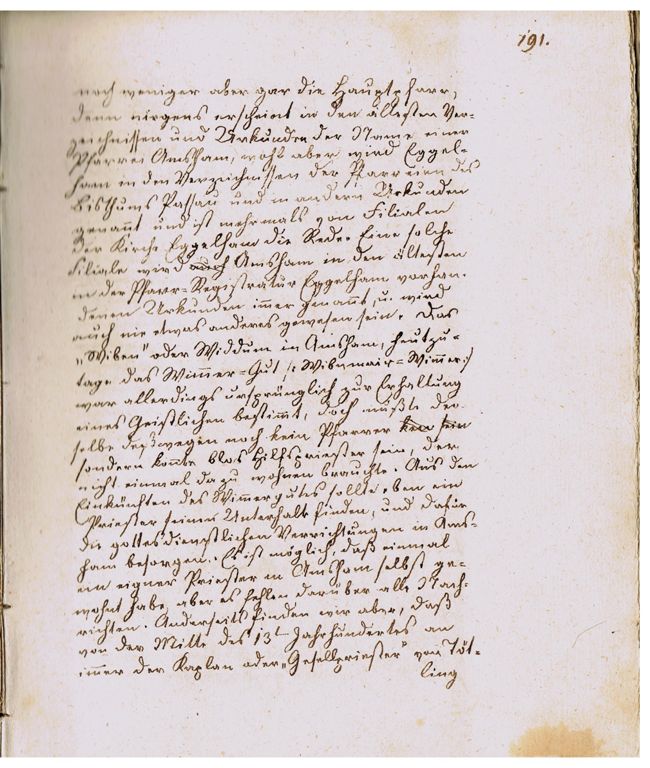 191.
noch weniger aber gar die Hauptpfarr,
denn nirgens erscheint in den ältesten Ver-
zeichnissen und Urkunden der Name einer
Pfarrei Amsham, wohl aber wird Eggel-
ham in den Verzeichnissen der Pfarreien des
Bisthums Passau und in andern Urkunden
genannt und ist mehrmals von Filialen
der Kirche Eggelham die Rede. Eine solche
Filiale wird auch Amsham in den ältesten
in der Pfarr-Registratur Eggelham vorhan-
denen Urkunden immer genannt, u. wird
auch nie etwas anderes gewesen sein. Das
„Wiben" oder Widdum in Amsham, heutzu-
tage das Wimmer-Gut /: Wibmair-Wimmer :/
war allerdings ursprünglich zur Erhaltung
eines Geistlichen bestimmt, doch mußte der-
selbe deßwegen noch kein Pfarrer sein
sondern konnte blos Hilfspriester sein, der
nicht einmal da zu wohnen brauchte. Aus den
Einkünften des Wimmergutes sollte eben ein
Priester seinen Unterhalt finden, und dafür
die gottesdienstlichen Verrichtungen in Ams-
ham besorgen. Es ist möglich, daß einmal
ein eigner Priester in Amsham selbst ge-
wohnt habe, aber es fehlen darüber alle Nach-
richten. Anderseits finden wir aber, daß
von der Mitte des 13t Jahrhundertes an
immer der Kaplan oder „Gesellpriester" von Tött-
ling